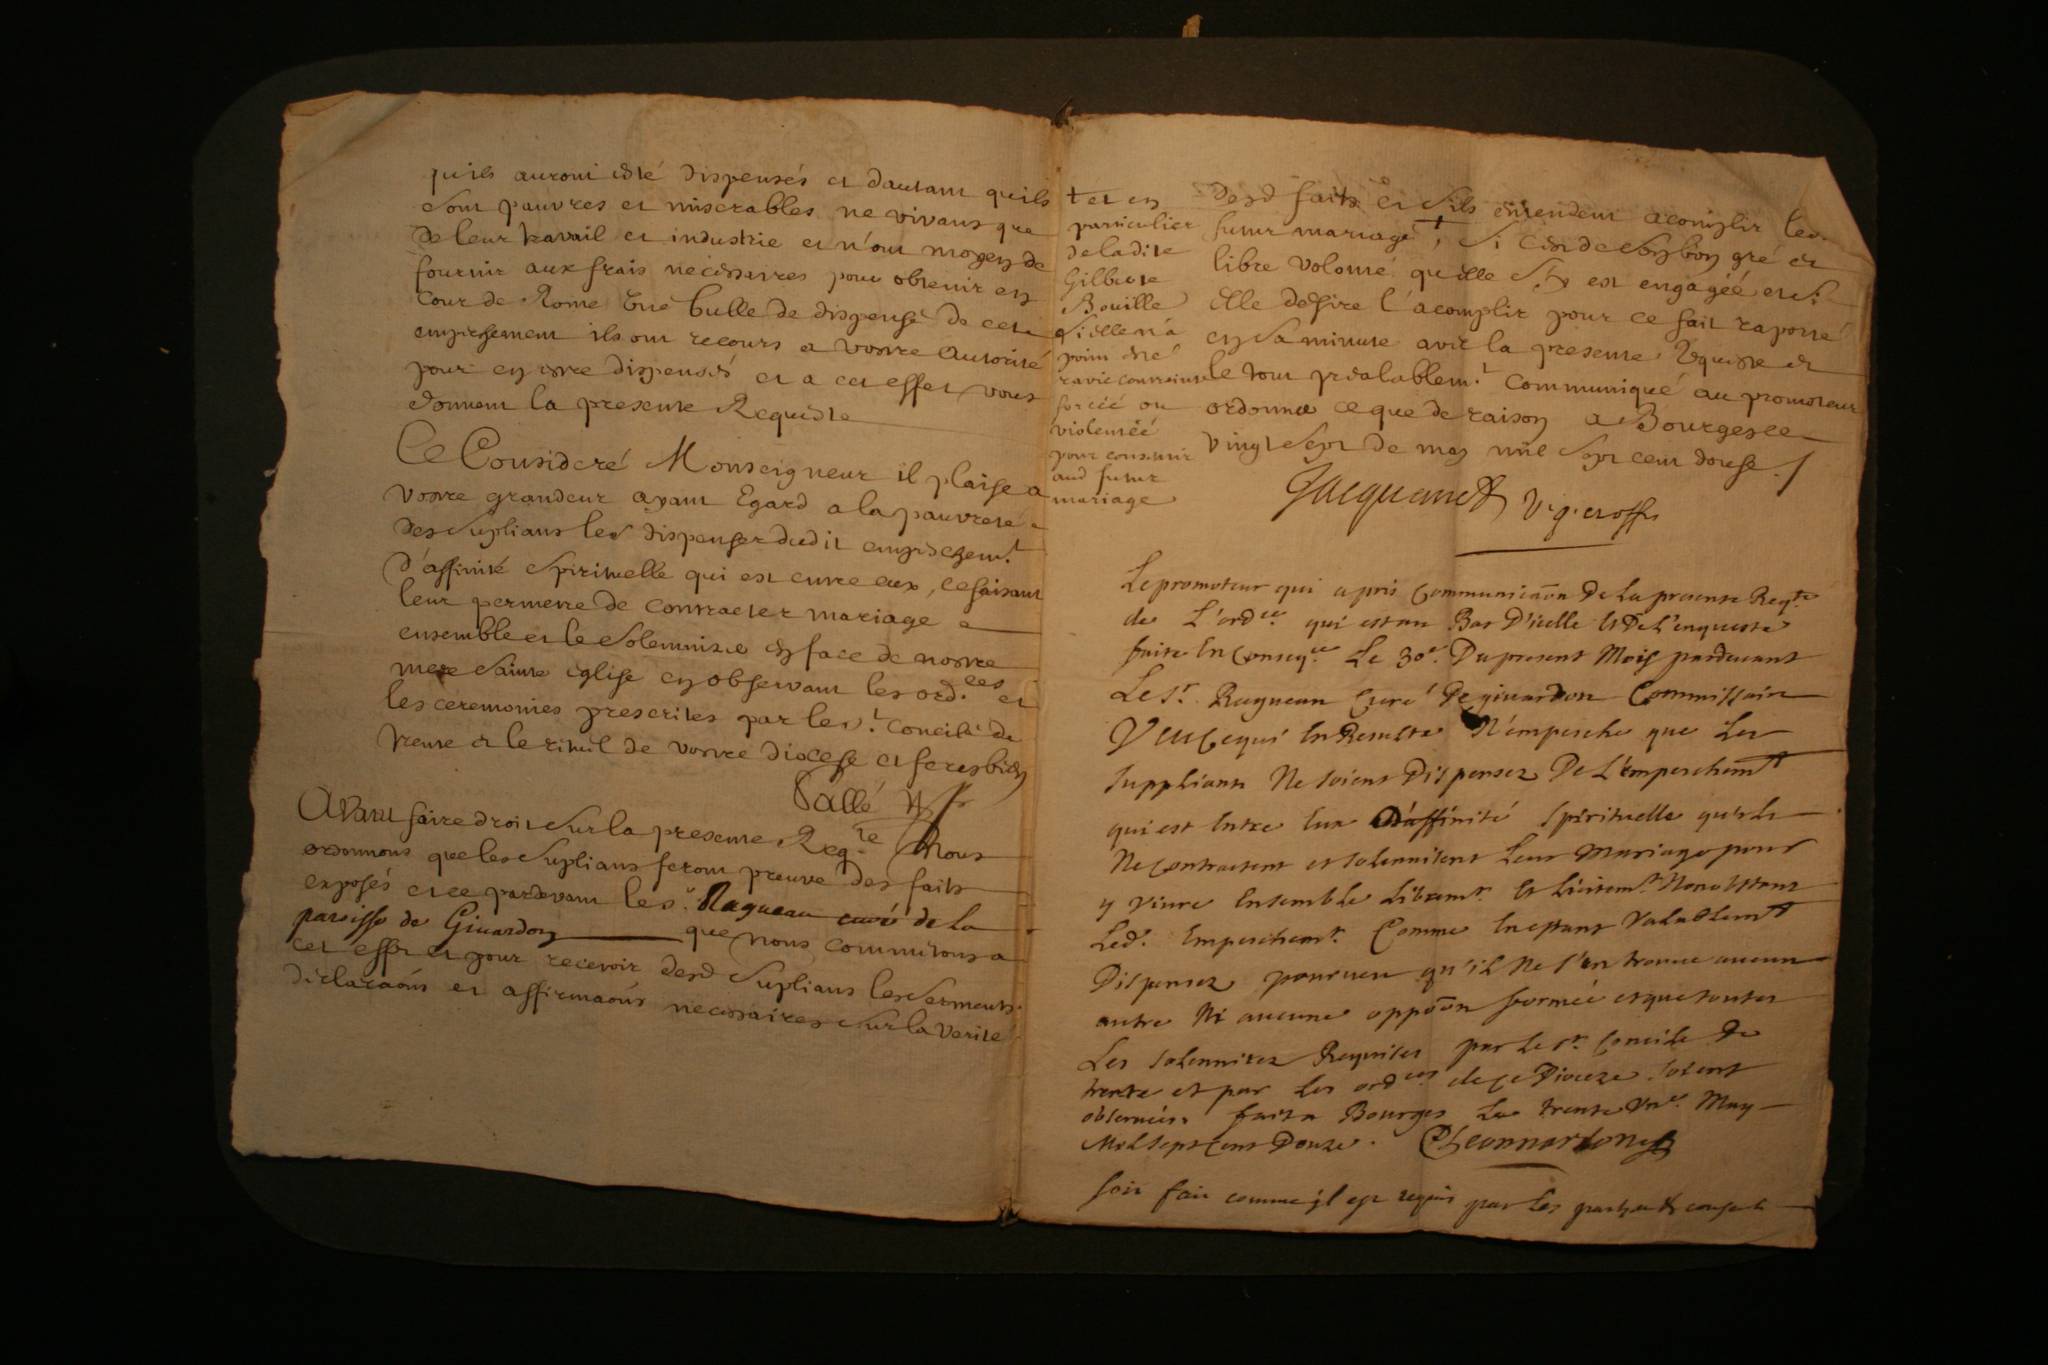 quils auront esté dispensés et dautant quils
sont pauvres et miserables ne vivans que
de leur travail et industrie et n'ont moyen de
fournir aux frais necessaires pour obtenir en
cour de Rome une bulle de dispense de cet
empeschement ils ont recours a vostre autorité
pour en estre dispensés et a cet effet vous
donnent la presente Requeste
Ce Consideré Monseigneur il plaise a
vostre grandeur ayant Egard a la pauvreté
des suplians les dispenser dudit empeschem.t
d'affinité spirituelle qui est entre eux, ce faisant
leur permettre de contracter mariage
ensemble et le solemniser en face de nostre
mere sainte église en observant les ord.ces et
les ceremonies prescrites par le s.t concile de
trente et le rituel de vostre diocese et feres bien
Pallé
Avant faire droit sur la presente Req.te Nous
ordonnons que les suplians feront preuve des faits
exposés et ce pardevant le s.r Ragueau curé de la
paroisse de Givardon que nous commettons a
cet effet et pour recevoir desd suplians les serments
declaraons et affirmaons necessaires sur la verité
desd faits et s'ils entendent acomplir led
futur mariage †, si c'est de son bon gré et
libre volonté qu'elle s'y est engagée et si
Elle desire l'acomplir pour ce fait raporté
en sa minute avec la presente Requeste et
le tout prealablem.t communiqué au promoteur
ordonner ce que de raison a Bourges ce
vingt sept de may mil sept cent douse
† et en
particulier
de ladite
Gilberte
Bouille
si elle n'a
point esté
ravie contrainte
forcée ou
violentée
pour consentir
aud futur
mariage
Jacquemet v. g. et off.
Le promoteur qui a pris Communicaon De La presente Req.te
de L'ord.ce qui est au Bas D'icelle Et De L'enqueste
faite En Conseq.ce Le 30e. Du present Mois pardevant
Le S.r Ragueau Curé De givardon Commissaire
Veu Ce qui En Resulte N'empesche que Les
supplians Ne soient Dispensez De L'empeschem.t
qui est Entre Eux D'affinité spirituelle qu'ils
Ne Contractent et solemnisent Leur Mariage pour
y vivre Ensemble Librem.t Et Licitem.t Nonobstant
Led.t Empeschem.t Comme En estant Valablem.t
Dispensez pourveu qu'il Ne s'en trouve aucun
autre Ni aucune oppoon formée et que toutes
Les solemnitez Requises par Le s.t Concile De
trente et par Les ord.ces de Ce Dioceze soient
observées. fait a Bourges Le trente Un.e May
Mil sept Cent Douze.
soit fait comme il est requis par les